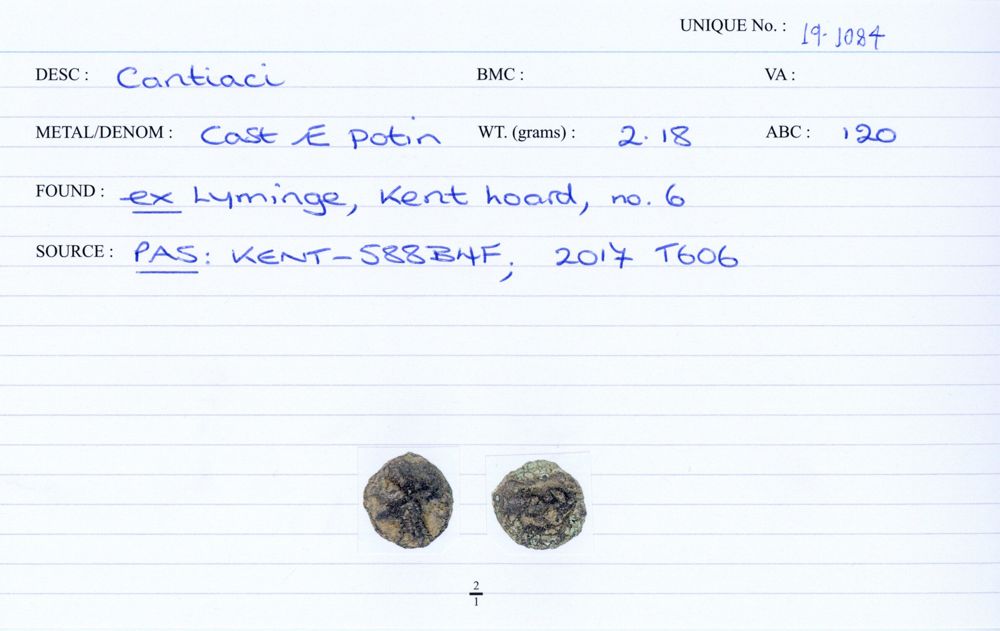 UNIQUE No. : 19-1084
DESC : Cantiaci BMC : VA :
METAL/DENOM : Cast Æ potin WT. (grams) : 2.18 ABC : 120
FOUND : ex Lyminge, Kent hoard, no. 6
SOURCE : PAS: KENT-588B4F; 2017 T606
2
1